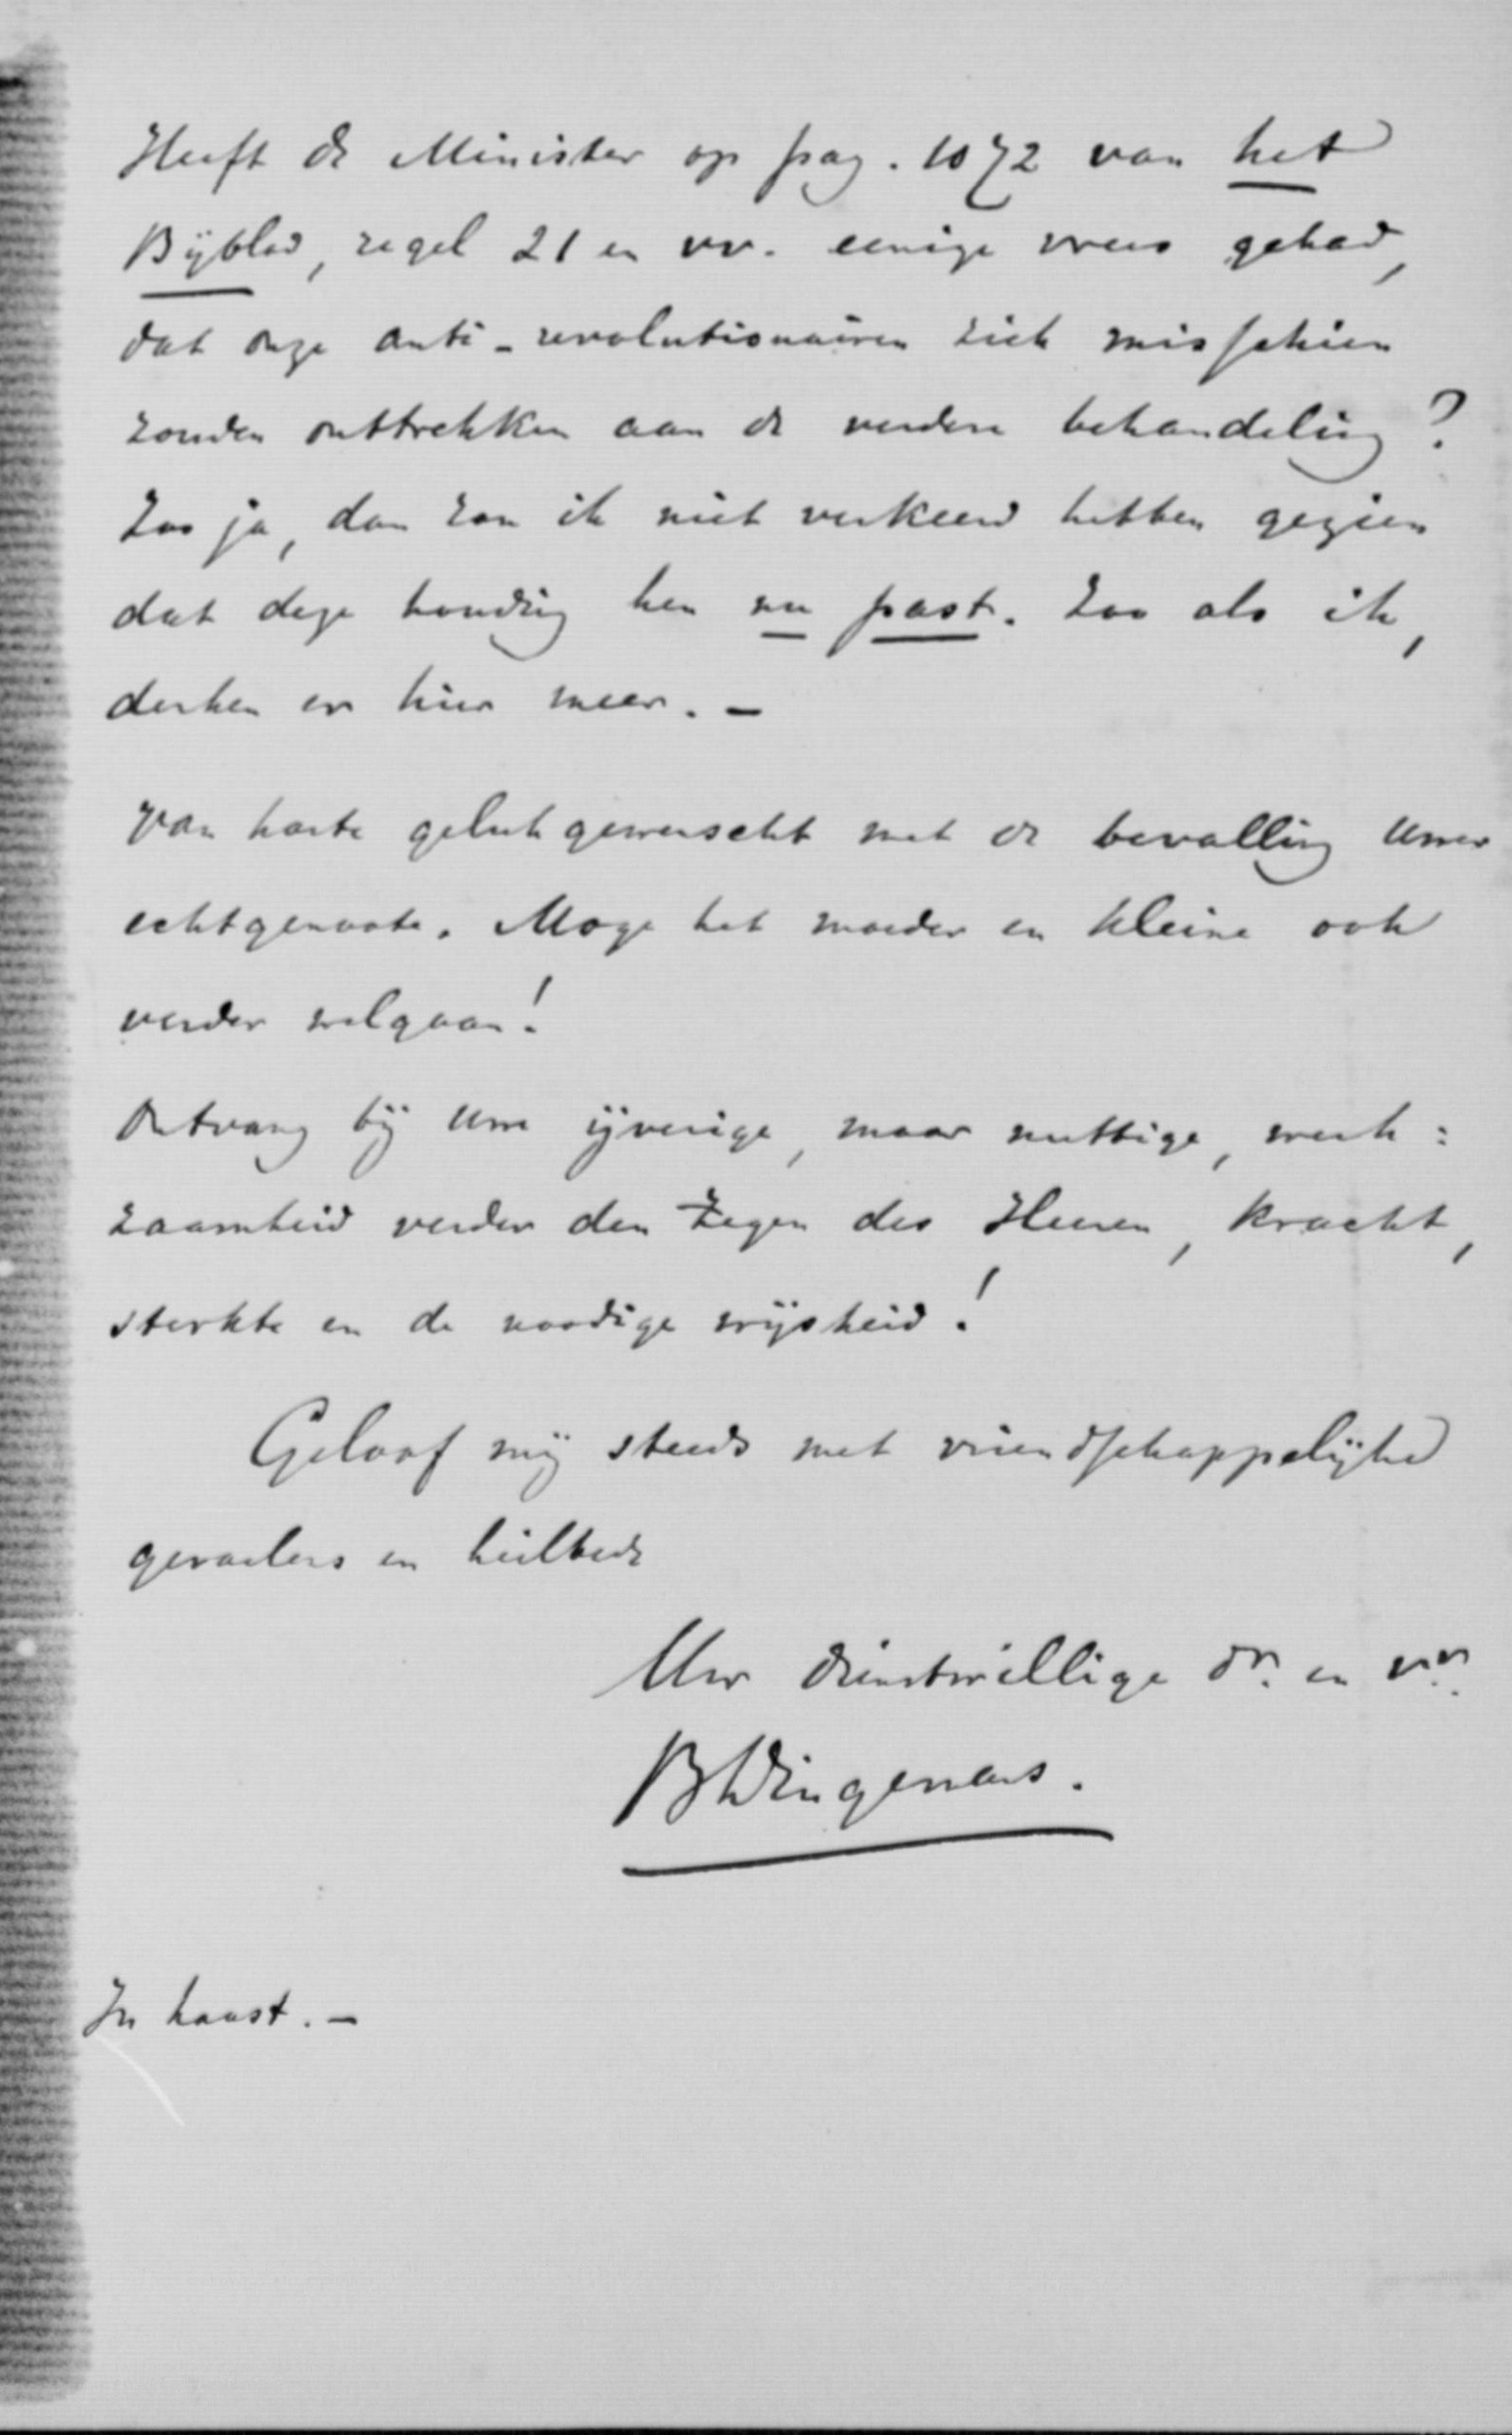 Heeft de Minister op pag. 1072 van het
Bijblad, regel 21 en vv. eenige vrees gehad,
dat onze anti-revolutionairen zich misschien
zouden onttrekken aan de verdere behandeling?
Zoo ja, dan zou ik niet verkeerd hebben gezien
dat deze houding hen nu past. Zoo als ik,
denken er hier meer. -
Van harte geluk gewenscht met de bevalling Uwer
echtgenoote. Moge het moeder en kleine ook
verder welgaan!
Ontvang bij Uwe ijverige, maar nuttige, werk=
zaamheid verder den Zegen des Heeren, kracht,
sterkte en de noodige wijsheid!
Geloof mij steeds met vriendschappelijke
gevoelens en heilbede
Uw dienstwillige dr. en vr.
BWingenaus.
In haast. -